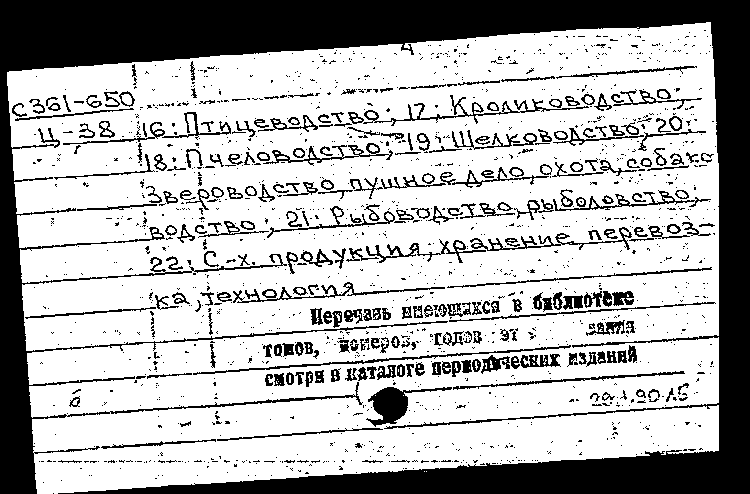 4
С361-650
Ц-38 16: Птицеводство; 17: Кролиководство;
18: Пчеловодство; 19: Шелководство; 20:
Звероводство, пушное дело, охота, собако
водство; 21: Рыбоводство, рыболовство;
22: С.-х. продукция, хранение, перевоз-
ка, технология
Перечень имеющихся в библиотеке
томов, номеров, годов
смотри в каталоге периодических изданий
б